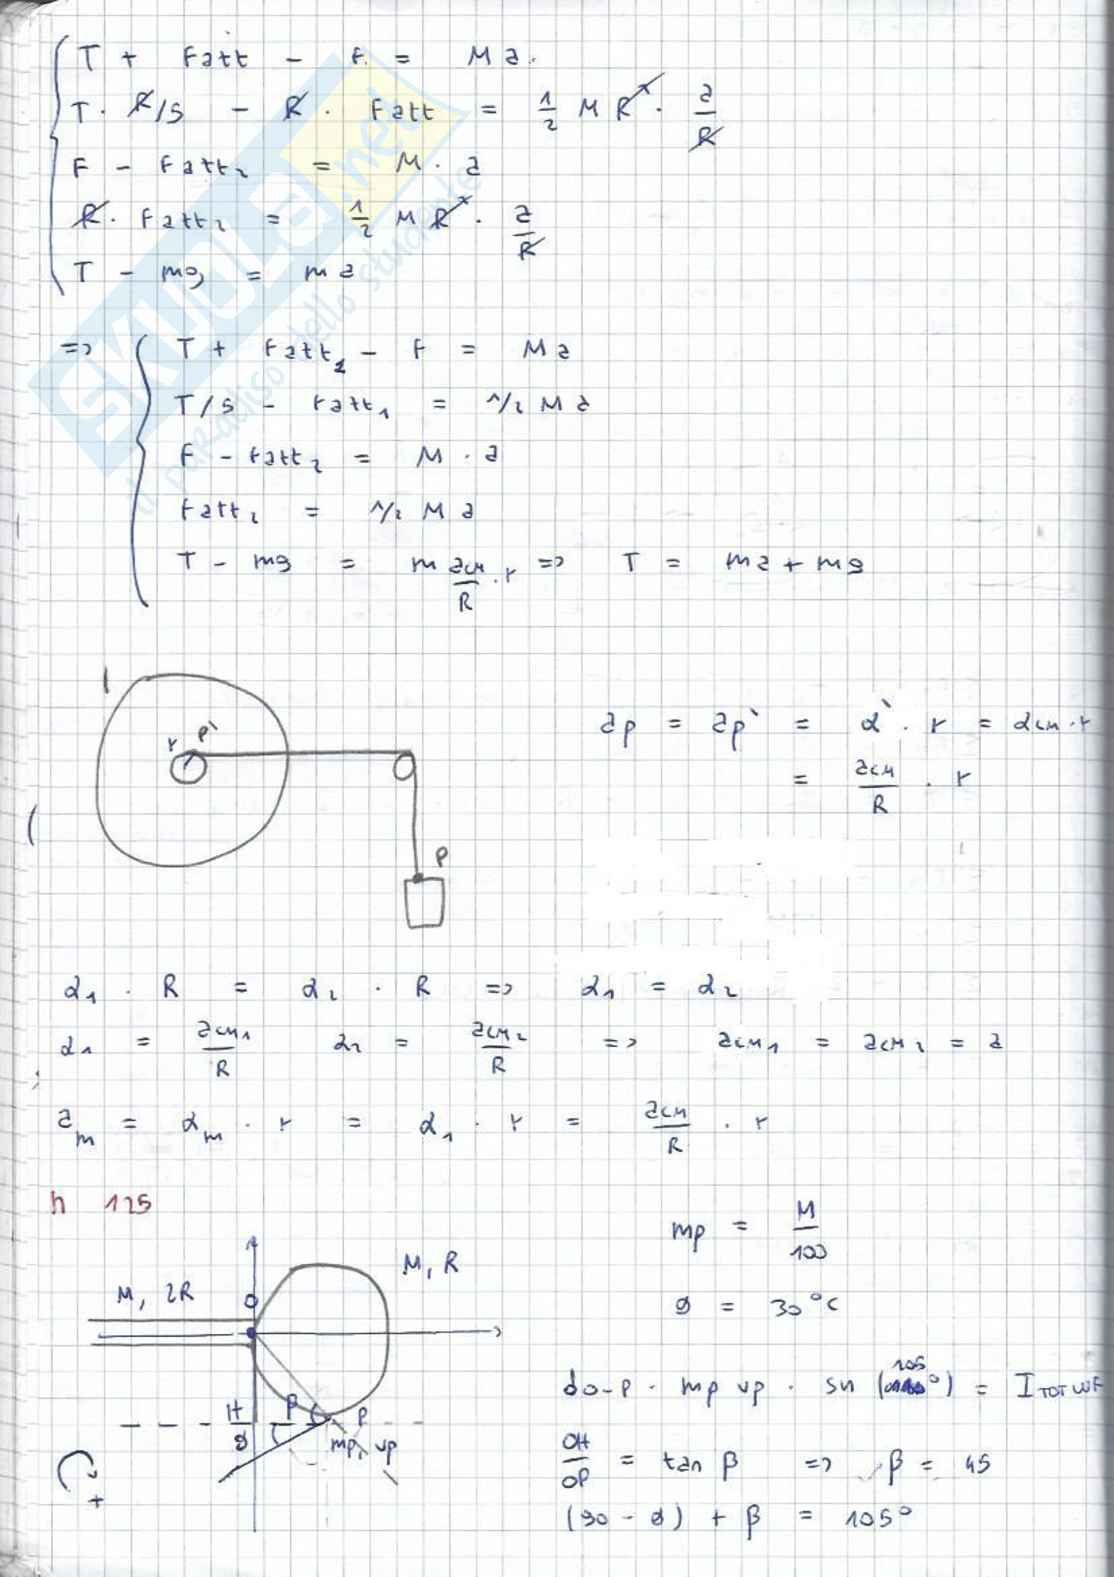 T + Fatt - F = Ma
T · R/5 - R · Fatt = 1/2 M R² · a/R
F - Fatt₂ = M · a
R · Fatt₂ = 1/2 M R² · a/R
T - mg = ma
=> T + Fatt₁ - F = Ma
T/5 - Fatt₁ = 1/2 Ma
F - Fatt₂ = M · a
Fatt₂ = 1/2 Ma
T - mg = m aCM/R · r => T = ma + mg
SKUOLA.net
il paradiso dello studente
r P'
P
aP = aP' = α' · r = αCM · r
= aCM/R · r
α₁ · R = α₂ · R => α₁ = α₂
α₁ = aCM₁/R α₂ = aCM₂/R => aCM₁ = aCM₂ = a
am = αm · r = α₁ · r = aCM/R · r
n 125
M, 2R
O
M, R
H
θ
β
P
mp, vp
+
mp = M/100
θ = 30°C
do-p · mp vp · sn (105°) = ITOT WF
OH/OP = tan β => β = 45
(90 - θ) + β = 105°